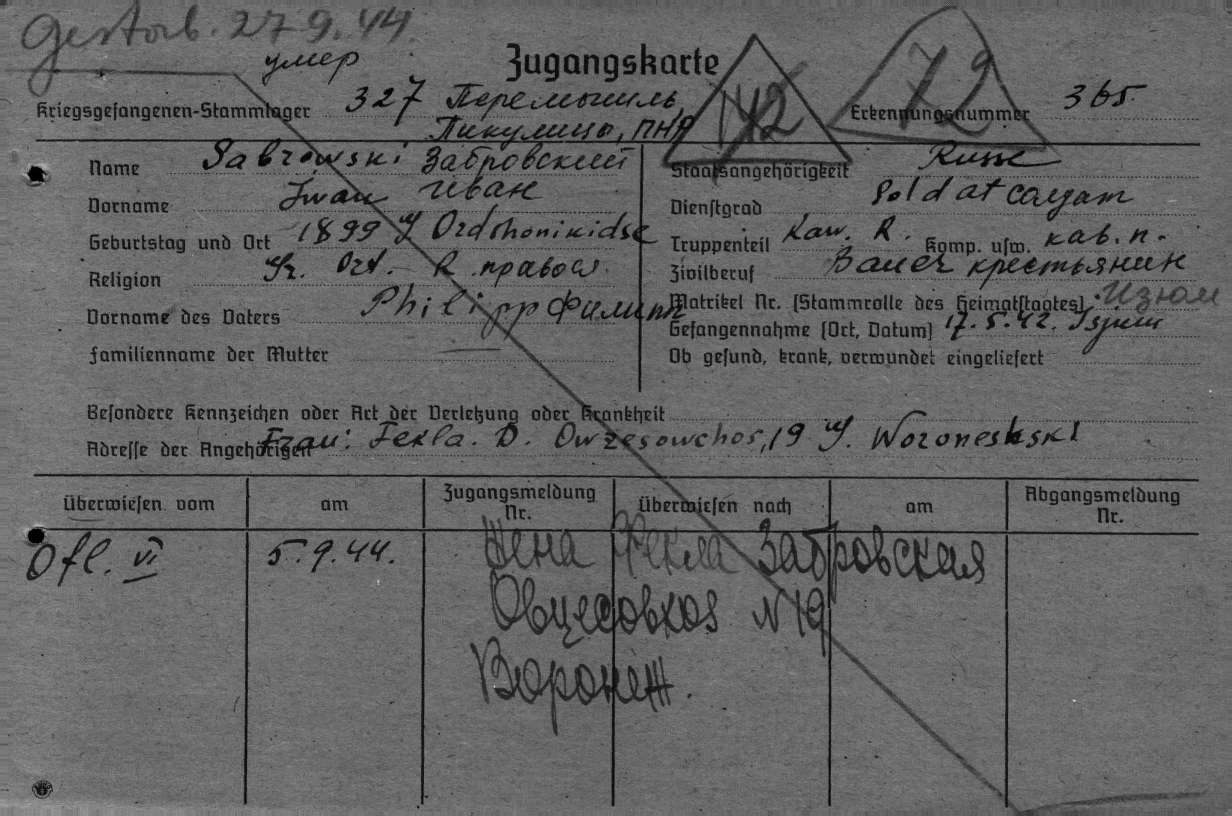 Gestorb. 27.9.44.
умер
Zugangskarte
142
72
Kriegsgefangenen-Stammlager 327 Перемышль, Пикулицы, ПНР
Erkennungsnummer 365.
Name Sabrowski Забровский
Vorname Iwan Иван
Geburtstag und Ort 1899 Ordshonikidse
Religion Gr. Ort. - R. правосл.
Vorname des Vaters Philipp Филипп
Familienname der Mutter —
Staatsangehörigkeit Russe
Dienstgrad Soldat солдат
Truppenteil Kaw. R. Komp. usw. кав. п.
Zivilberuf Bauer крестьянин
Matrikel Nr. (Stammrolle des Heimatstaates) Изюм
Gefangennahme (Ort, Datum) 17.5.42. Isjum
Ob gesund, krank, verwundet eingeliefert
Besondere Kennzeichen oder Art der Verletzung oder Krankheit
Adresse der Angehörigen Frau: Fekla. D. Owzesowchos, 19 Woroneshski
Überwiesen vom
am
Zugangsmeldung Nr.
Überwiesen nach
am
Abgangsmeldung Nr.
Ofl. VI
5.9.44.
Жена Фекла Забровская
Овцесовхоз N 19
Воронеж.